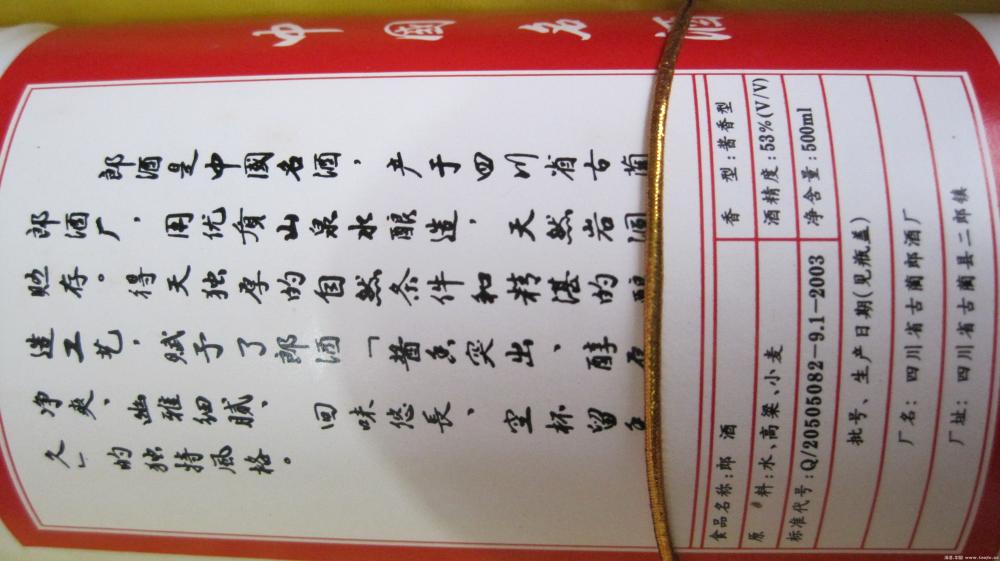 中國名酒
郎酒是中國名酒，产于四川省古蔺
郎酒厂，用优质山泉水酿造，天然岩洞
贮存。得天独厚的自然条件和精湛的酿
造工艺，赋予了郎酒「酱香突出、醇厚
净爽、幽雅细腻、回味悠長、空杯留香
久」的独特風格。
食品名称:郎 酒
香 型:酱香型
原 料:水、高粱、小麦
酒精度:53%(V/V)
标准代号:Q/20505082-9.1-2003
净含量:500ml
批号、生产日期(见瓶盖)
厂名: 四川省古蔺郎酒厂
厂址: 四川省古蔺县二郎镇